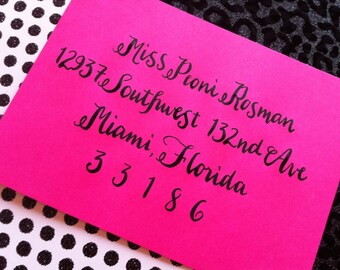 Miss Pioni Rosman
12937 Southwest 132nd Ave
Miami, Florida
33186